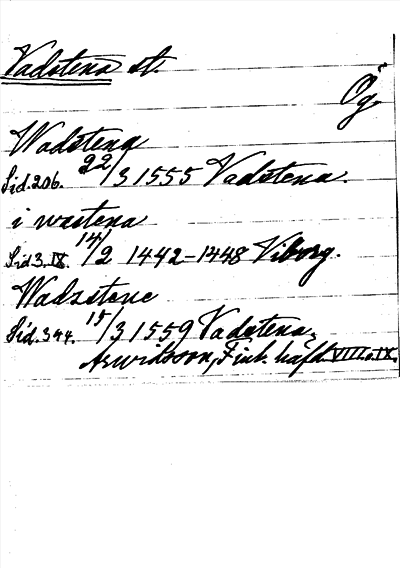 Vadstena st.
Ög.
Wadstena
Sid. 206. 22/3 1555 Vadstena.
i wastena
Sid 3. IX. 14/2 1442-1448 Viborg.
Wadzstene
Sid. 344. 15/3 1559 Vadstena.
Arwidsson, Finl. häfd. VIII o. IX.